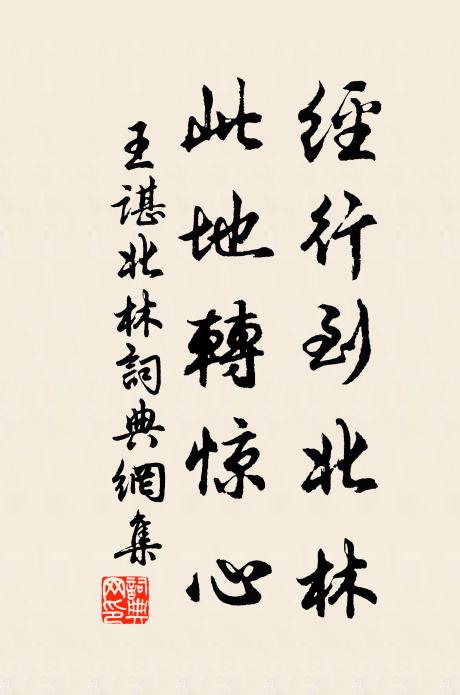 經行到北林
此地轉惊心
王諶北林詞典網集
詞典網印